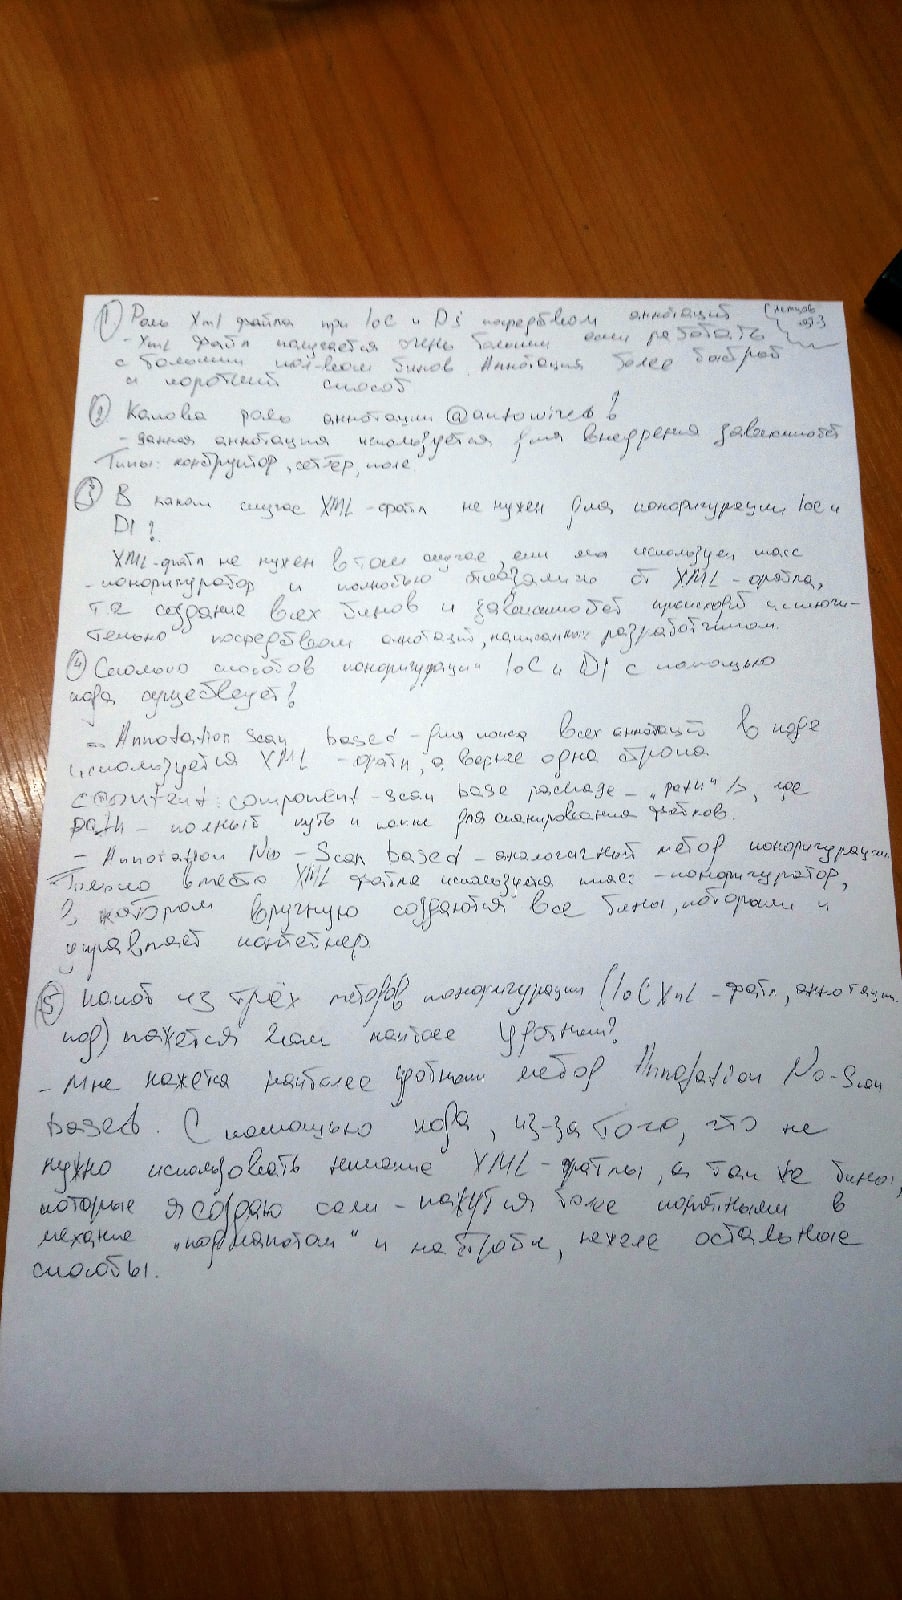 1 Роль Xml файла при IoC и DI посредством аннотаций
- Xml файл получается очень большим если работать
с большим кол-вом бинов. Аннотация более быстрый
и короткий способ
2 Какова роль аннотации @autowired?
- данная аннотация используется для внедрения зависимостей
Типы: конструктор, сеттер, поле
3 В каком случае XML-файл не нужен для конфигурации IoC и
DI?
XML-файл не нужен в том случае, если мы используем класс
-конфигуратор и полностью отказались от XML-файла,
т.е создание всех бинов и зависимостей происходит исключи-
тельно посредством аннотаций, написанных разработчиком.
4 Сколько способов конфигурации IoC и DI с помощью
кода существует?
- Annotation Scan based - для поиска всех аннотаций в коде
используется XML-файл, а вернее одна строка
<content: component-scan base package = "path" />, где
path - полный путь к папке для сканирования файлов.
- Annotation No-Scan based - аналогичный метод конфигурации
Только вместо XML файла используется класс-конфигуратор,
в котором вручную создаются все бины, которыми и
управляет контейнер
5 Какой из трёх методов конфигурации (IoC Xml-файл, аннотации
код) кажется Вам наиболее удобным?
- Мне кажется наиболее удобным метод Annotation No-Scan
based. С помощью кода, из-за того, что не
нужно использовать лишние XML-файлы, а так же бины,
которые я создаю сам - кажутся более понятными в
механике "под капотом" и настройки, нежели остальные
способы.